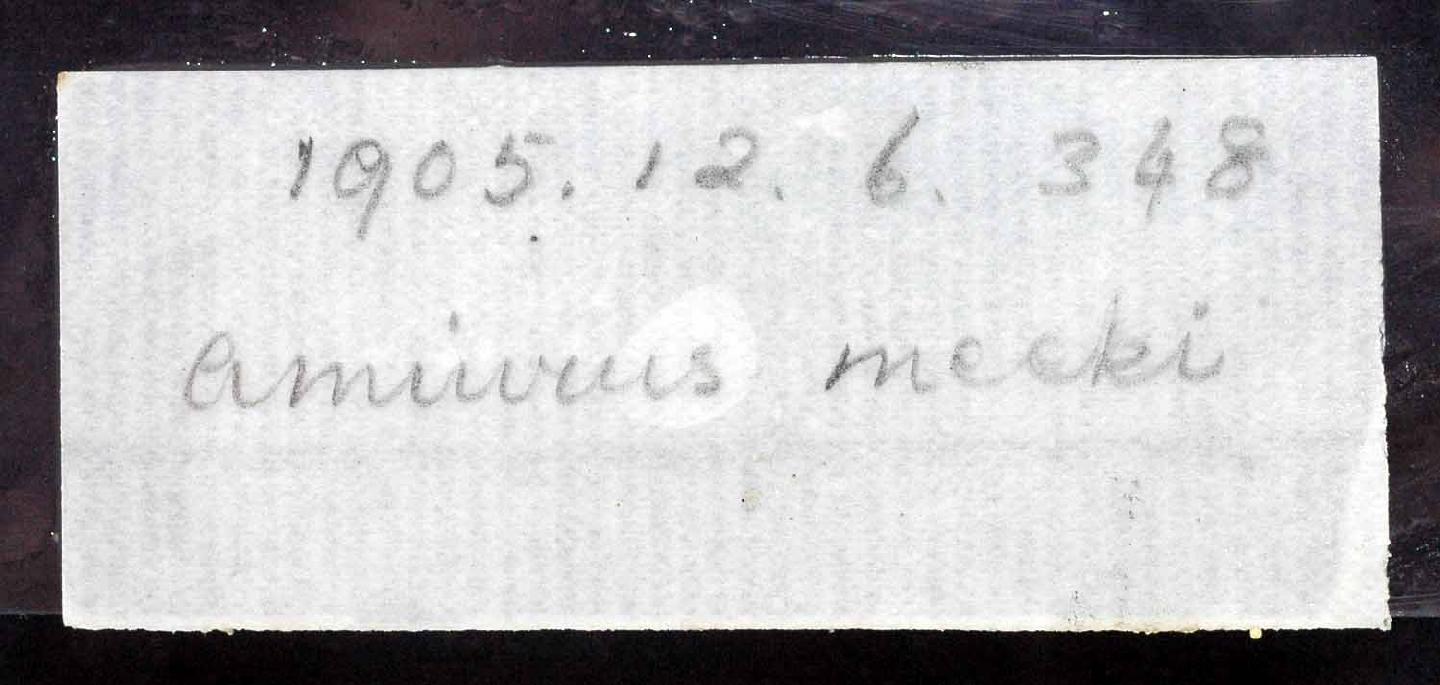 1905. 12. 6. 348
Amiurus meeki